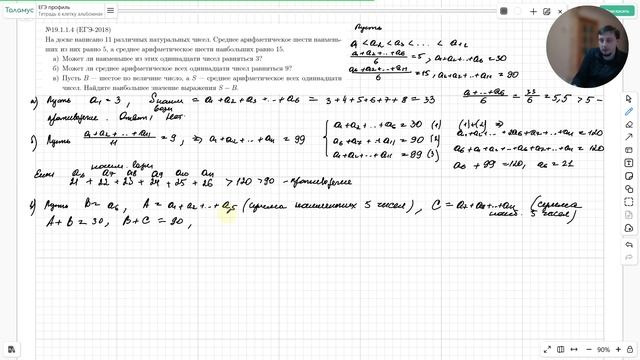 Таламус
ЕГЭ профиль
Тетрадь в клетку альбомная
№19.1.1.4 (ЕГЭ-2018)
На доске написано 11 различных натуральных чисел. Среднее арифметическое шести наимень-
ших из них равно 5, а среднее арифметическое шести наибольших равно 15.
а) Может ли наименьшее из этих одиннадцати чисел равняться 3?
б) Может ли среднее арифметическое всех одиннадцати чисел равняться 9?
в) Пусть B — шестое по величине число, а S — среднее арифметическое всех одиннадцати
чисел. Найдите наибольшее значение выражения S − B.
Пусть
a₁ < a₂ < a₃ < ... < a₁₁
(a₁+a₂+...+a₆)/6 = 5, a₁+a₂+...+a₆ = 30
(a₆+a₇+...+a₁₁)/6 = 15, a₆+a₇+...+a₁₁ = 90
а) Пусть a₁ = 3, Sнаим = a₁+a₂+a₃+...+a₆ = 3+4+5+6+7+8 = 33
(a₁+...+a₆)/6 = 33/6 = 5,5 > 5 –
противоречие. Ответ: нет.
б) Пусть (a₁+a₂+...+a₁₁)/11 = 9, => a₁+a₂+...+a₁₁ = 99
a₁+a₂+...+a₆ = 30 (1)
a₆+a₇+...+a₁₁ = 90 (2)
a₁+a₂+...+a₁₁ = 99 (3)
(1)+(2) =>
a₆ + 99 = 120, a₆ = 21
Если a₆ a₇ a₈ a₉ a₁₀ a₁₁
21 + 22 + 23 + 24 + 25 + 26 > 120 > 90 – противоречие
в) Пусть B = a₆, A = a₁+a₂+...+a₅ (сумма наименьших 5 чисел), C = a₇+a₈+...+a₁₁ (сумма
наиб. 5 чисел)
A + B = 30, B + C = 90,
90%